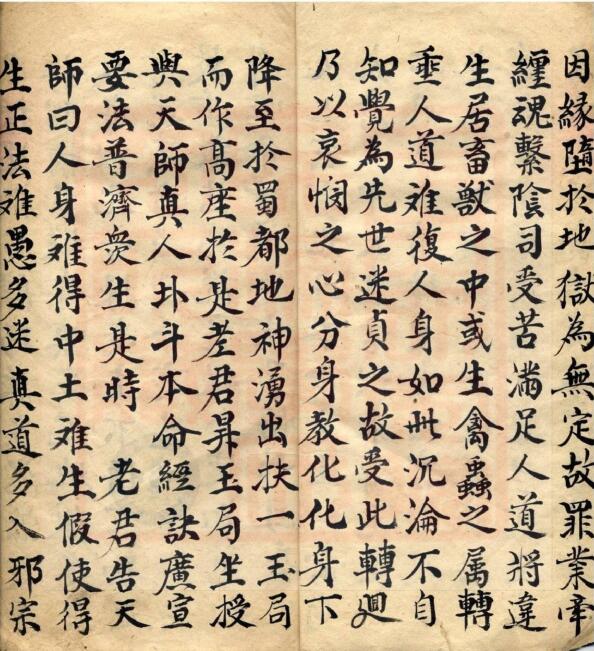 因緣墮於地獄為無定故罪業牽
纏魂繫陰司受苦滿足人道將違
生居畜獸之中或生禽蟲之属轉
乖人道难復人身如此沉淪不自
知覺為先世迷貞之故受此轉廻
乃以哀憫之心分身教化化身下
降至於蜀都地神湧出扶一玉局
而作高座於是老君昇玉局坐授
與天師真人北斗本命經訣廣宣
要法普濟衆生是時　老君告天
師曰人身难得中土难生假使得
生正法难愚多迷真道多入邪宗